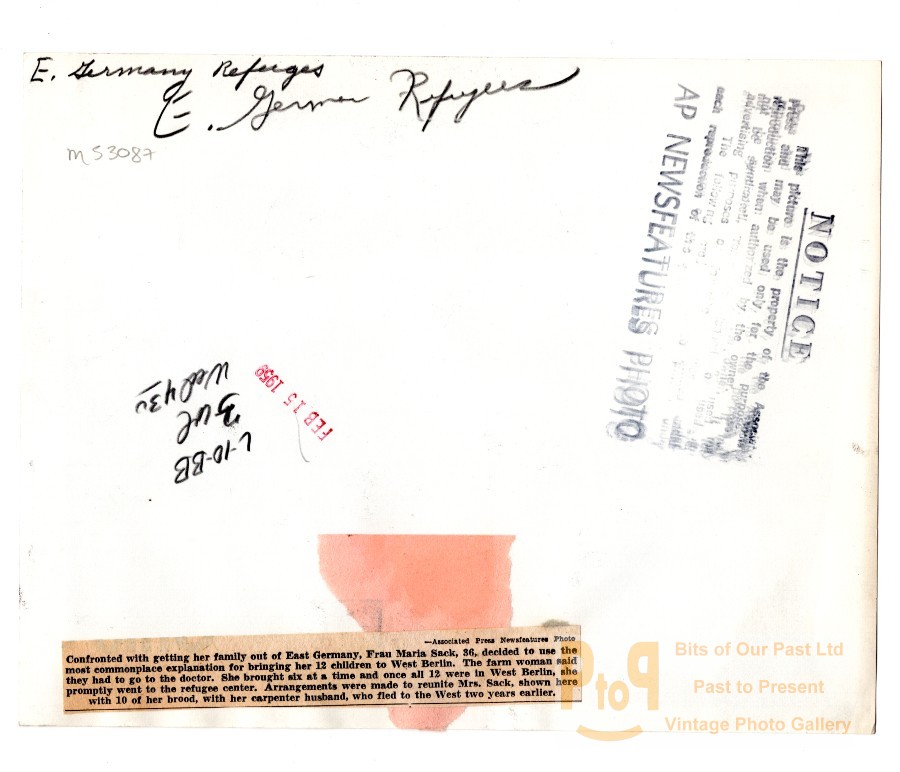 E. Germany Refuges
E. German Refugees
M53087
NOTICE
This picture is the property of the
and may be used only for the purposes
reproduction when authorized
not be syndicated,
advertising purposes
The following
each reproduction of this
AP NEWSFEATURES PHOTO
FEB 15 1959
L-10-BB
3 col
Wed 430
—Associated Press Newsfeatures Photo
Confronted with getting her family out of East Germany, Frau Maria Sack, 36, decided to use the
most commonplace explanation for bringing her 12 children to West Berlin. The farm woman said
they had to go to the doctor. She brought six at a time and once all 12 were in West Berlin, she
promptly went to the refugee center. Arrangements were made to reunite Mrs. Sack, shown here
with 10 of her brood, with her carpenter husband, who fled to the West two years earlier.
PtoP
Bits of Our Past Ltd
Past to Present
Vintage Photo Gallery